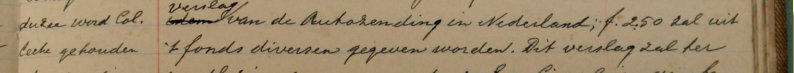 duzee word Col. verslag van de Rutozending in Nederland; f. 2.50 zal uit
lecte gehouden 't fonds diversen gegeven worden. Dit verslag zal ter